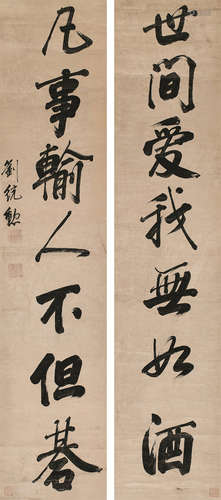 世間愛我無如酒
凡事輸人不但棊
劉統勲